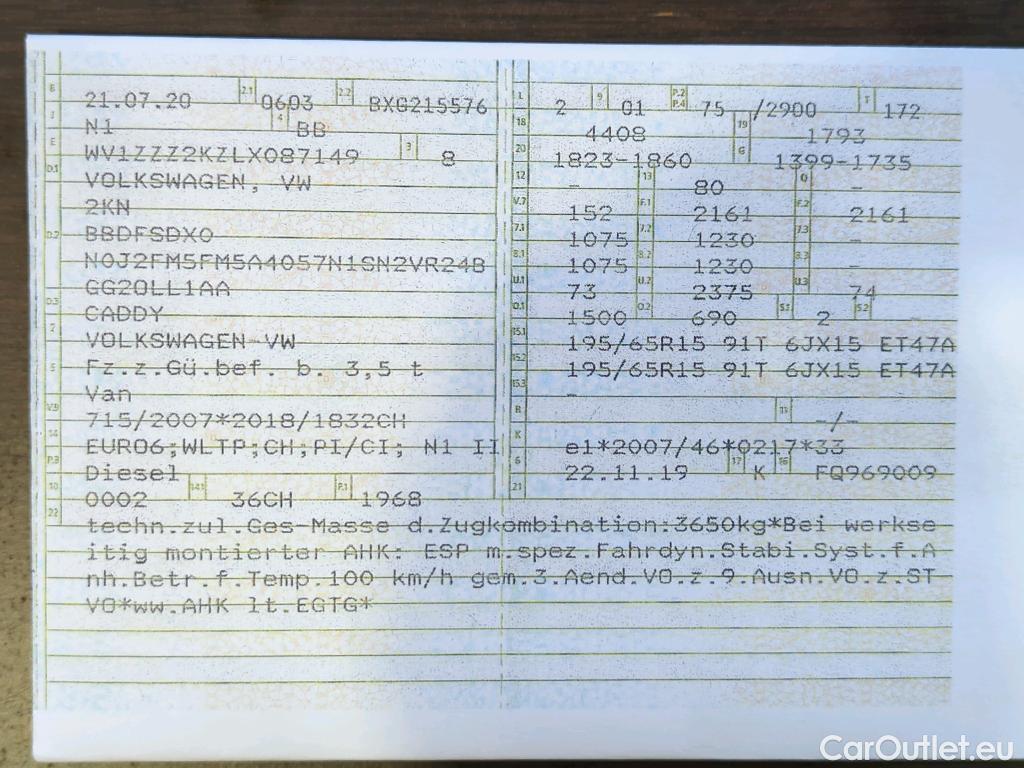 B 21.07.20 2.1 0603 2.2 BXG215576
J N1 4 BB
E WV1ZZZ2KZLX087149 3 8
D.1 VOLKSWAGEN, VW
2KN
D.2 BBDFSDX0
N0J2FM5FM5A4057N1SN2VR24B
GG20LL1AA
D.3 CADDY
2 VOLKSWAGEN-VW
5 Fz.z.Gü.bef. b. 3,5 t
Van
V.9 715/2007*2018/1832CH
14 EURO6;WLTP;CH;PI/CI; N1 II
P.3 Diesel
10 0002 14.1 36CH P.1 1968
L 2 9 01 P.2 P.4 75 /2900 T 172
18 4408 19 1793
20 1823-1860 G 1399-1735
12 - 13 80 Q -
V.7 152 F.1 2161 F.2 2161
7.1 1075 7.2 1230 7.3 -
8.1 1075 8.2 1230 8.3 -
U.1 73 U.2 2375 U.3 74
O.1 1500 O.2 690 S.1 2 S.2 -
15.1 195/65R15 91T 6JX15 ET47A
15.2 195/65R15 91T 6JX15 ET47A
15.3 -
R 11 -/-
K e1*2007/46*0217*33
6 22.11.19 17 K 16 FQ969009
21
22 techn.zul.Ges-Masse d.Zugkombination:3650kg*Bei werkse
itig montierter AHK: ESP m.spez.Fahrdyn.Stabi.Syst.f.A
nh.Betr.f.Temp.100 km/h gem.3.Aend.VO.z.9.Ausn.VO.z.ST
VO*ww.AHK lt.EGTG*
CarOutlet.eu